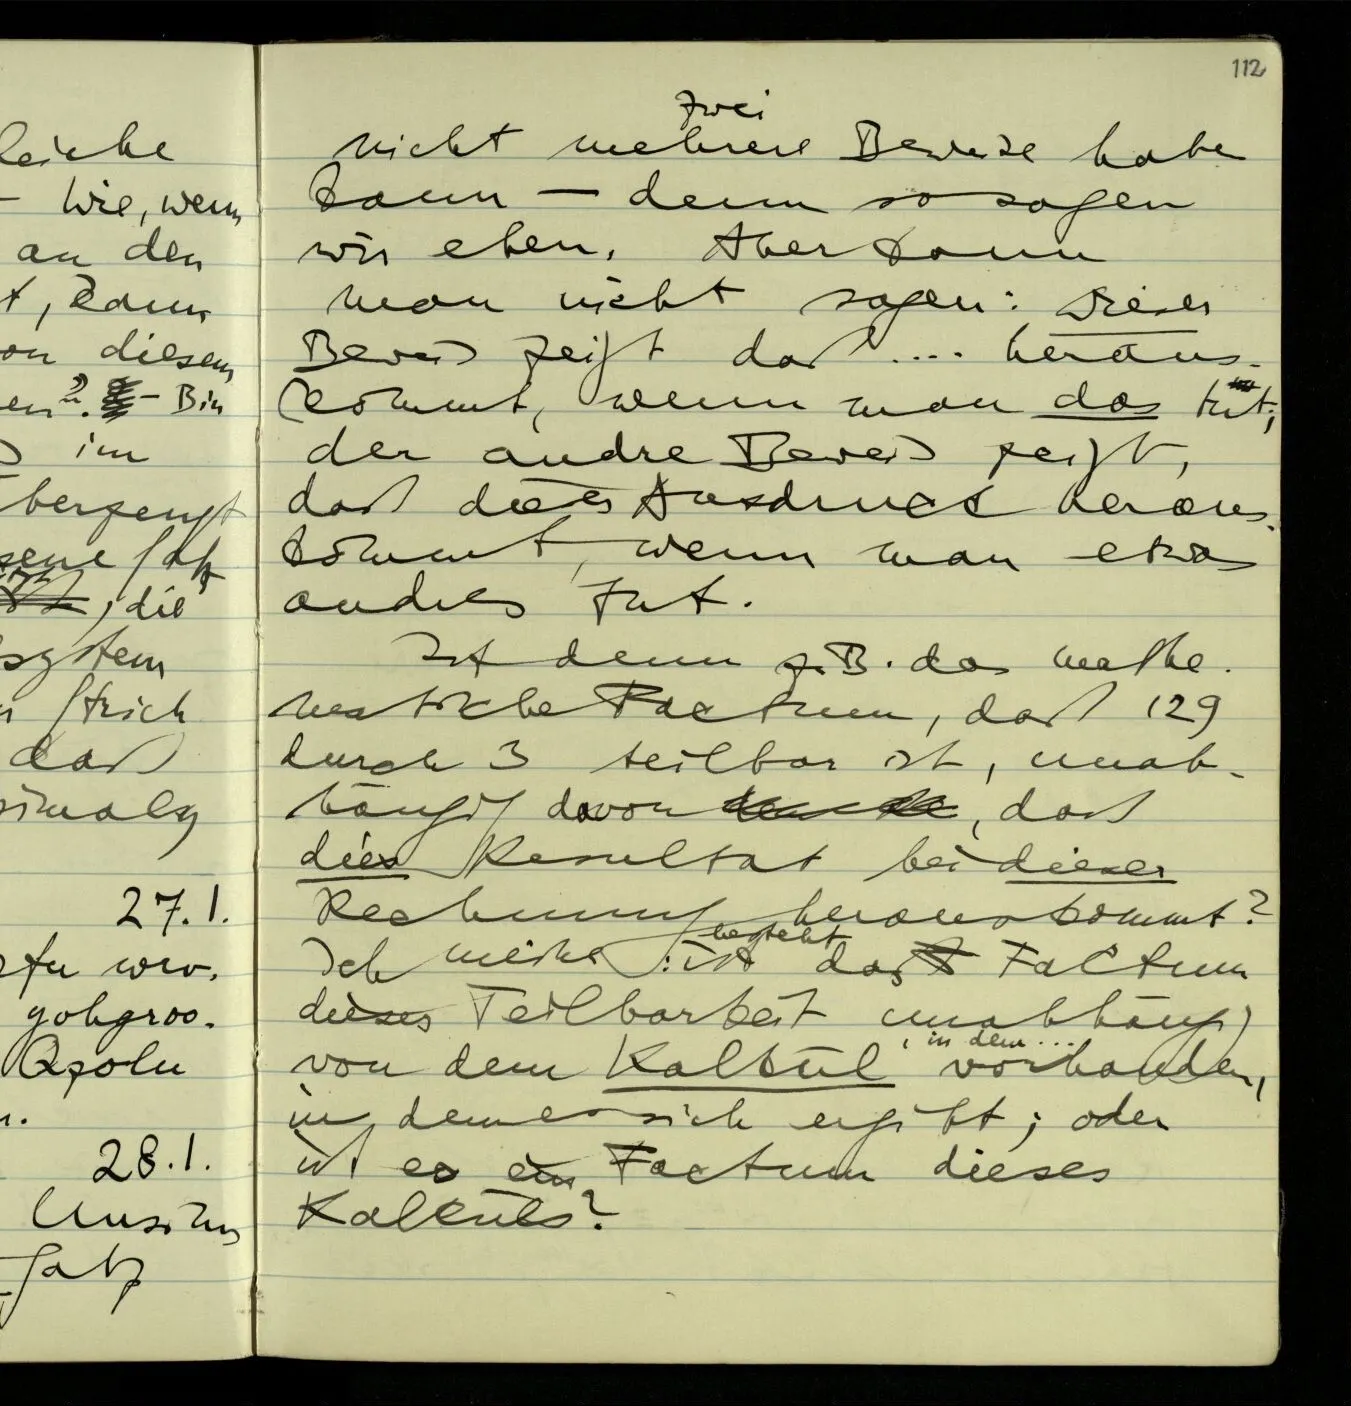 leiche
– Wie, wenn
an den
t, kann
on diesem
en? – Bin
im
berzeugt
sene Satz
, die
system
n Strich
daß
simalz
27.1.
ofu wrv.
yohgroo.
Qzolu
n.
28.1.
Unsinn
Satz
112
zwei
nicht mehrere Beweise haben
kann – denn so sagen
wir eben. Aber kann
man nicht sagen: dieser
Beweis zeigt daß .... heraus-
kommt, wenn man das tut;
der andre Beweis zeigt,
daß dieser Ausdruck heraus-
kommt, wenn man etwas
andres tut.
Ist denn z.B. das mathe-
matische Factum, daß 129
durch 3 teilbar ist, unab-
hängig davon, daß
dies Resultat bei dieser
Rechnung herauskommt?
besteht
Ich meine: ist das Factum
dieser Teilbarkeit unabhängig
, in dem ...
von dem Kalkül vorhanden,
in dem es sich ergibt; oder
ist es ein Factum dieses
Kalküls?